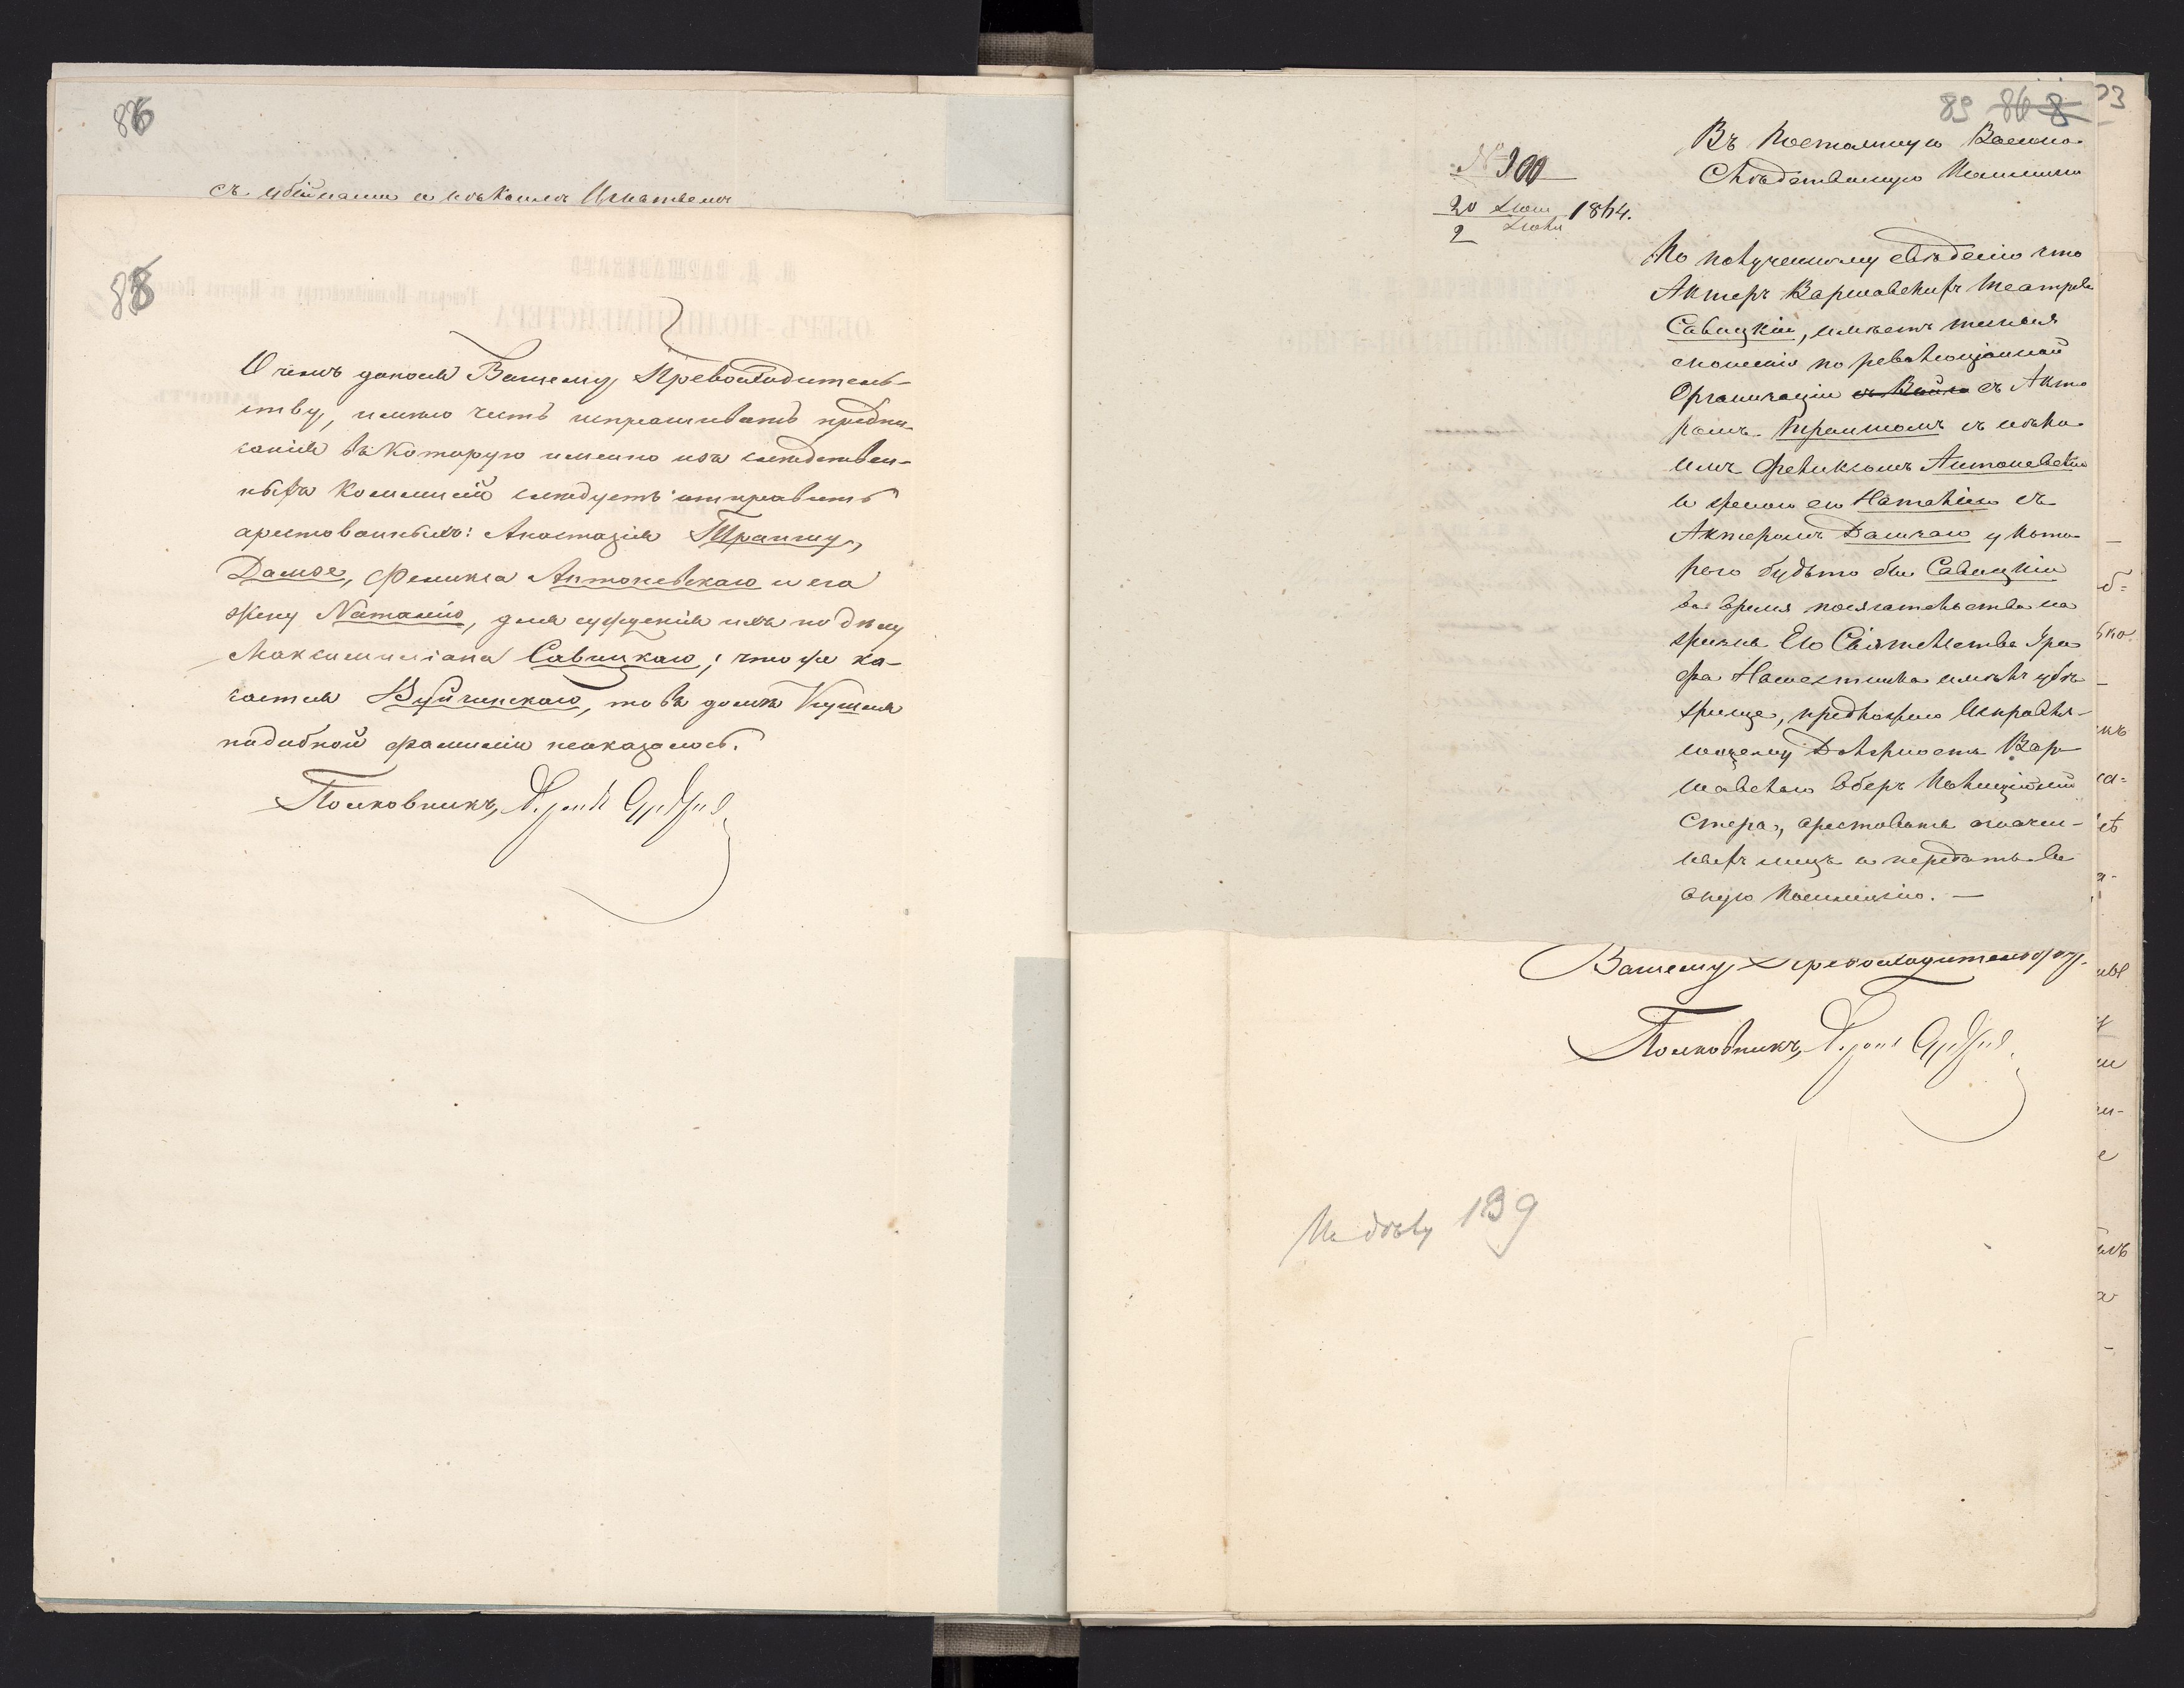 86
съ убійцами и нѣкимъ Игнатьемъ
88
О чемъ донося Вашему Превосходитель-
ству, имѣю честь испрашивать предпи-
санія въ которую именно изъ слѣдствен-
ныхъ коммисій слѣдуетъ отправить
арестованныхъ: Анастазія Трапшу,
Дамзе, Феликса Антоневскаго и его
жену Наталію, для сужденія ихъ по дѣлу
Максимиліана Савицкаго; что же ка-
сается Вуйчинскаго, то въ домѣ
подобной фамиліи неоказалось.
Полковникъ,
89 86 8
Въ Постоянную Военно-
Слѣдственную Коммисію
№ 300
20 Іюня
2 Іюля 1864.
По полученному свѣденію что
Актеръ Варшавскихъ Театровъ
Савицкій, имѣетъ тесныя
сношенія по революціонной
Организаціи съ Акте
ромъ Трапшомъ съ нѣкі
имъ Феликсомъ Антоневскимъ
и женою его Наталіею съ
Актеромъ Дамзою у кото
раго будьто бы Савицкій
во время посягательства на
жизнь Его Сіятельства Гра
фа Намѣстника имѣлъ убѣ
жище, предложено Исправля-
ющему Должность Вар
шавскаго Оберъ Полиціймей
стера, арестовать означен-
ныхъ лицъ и передать въ
оную Коммисію. —
Вашему Превосходительству.
Полковникъ,
Къ дѣлу 139